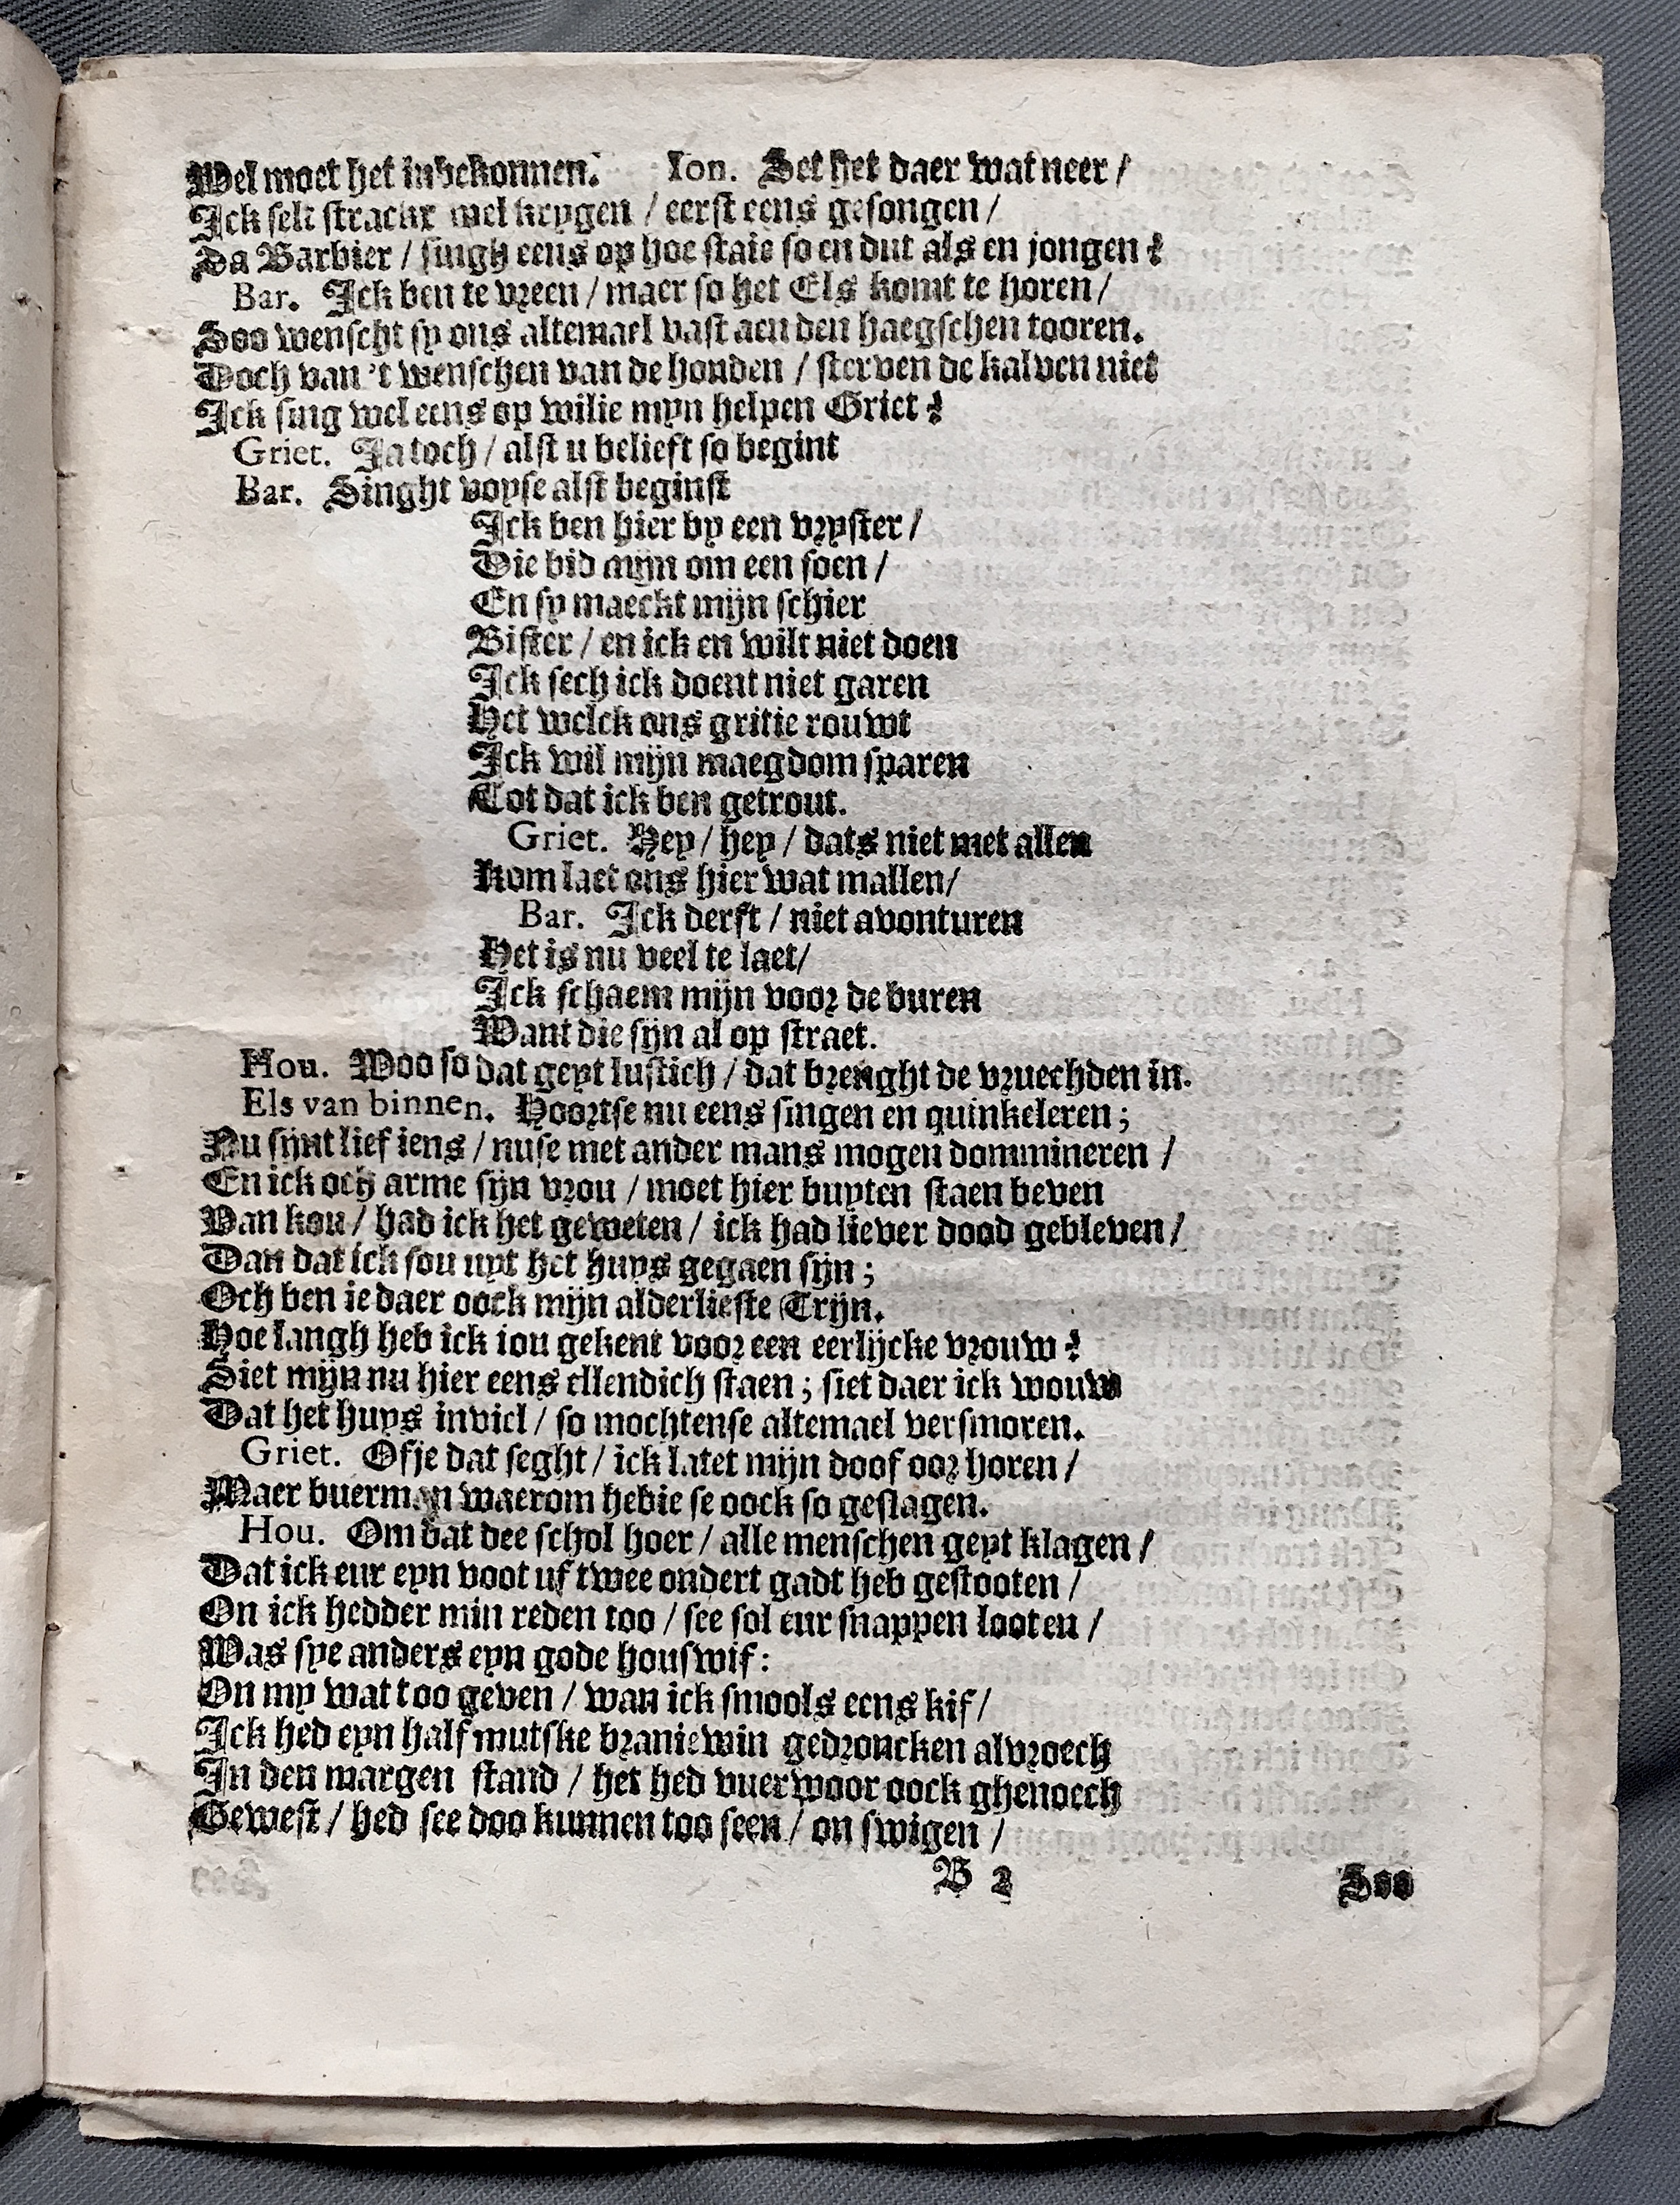 Wel moet het inbekonnen. Ion. Set het daer wat neer /
Ick selt strackx wel krygen / eerst eens gesongen /
Sa Barbier / singh eens op hoe staie so en dut als en jongen?
Bar. Ick ben te vreen / maer so het Els komt te horen /
Soo wenscht sy ons altemael vast aen den haegschen tooren.
Doch van 't wenschen van de honden / sterven de kalven niet
Ick sing wel eens op wilie myn helpen Griet?
Griet. Ja toch / alst u belieft so begint
Bar. Singht voyse alst beginst
Ick ben hier by een vryster /
Die bid mijn om een soen /
En sy maeckt mijn schier
Bister / en ick en wilt niet doen
Ick sech ick doent niet garen
Het welck ons gritie rouwt
Ick wil mijn maegdom sparen
Tot dat ick ben getrout.
Griet. Hey / hey / dats niet met allen
Kom laet ons hier wat mallen /
Bar. Ick derft / niet avonturen
Het is nu veel te laet /
Ick schaem mijn voor de buren
Want die sijn al op straet.
Hou. Woo so dat geyt lustich / dat brenght de vruechden in.
Els van binnen. Hoortse nu eens singen en quinkeleren;
Nu sijnt lief iens / nuse met ander mans mogen dommineren /
En ick och arme sijn vrou / moet hier buyten staen beven
Van kou / had ick het geweten / ick had liever dood gebleven /
Dan dat ick sou uyt het huys gegaen sijn;
Och ben ie daer oock mijn alderlieste Trijn.
Hoe langh heb ick iou gekent voor een eerlijcke vrouw?
Siet mijn nu hier eens ellendich staen; siet daer ick wouw
Dat het huys inviel / so mochtense altemael versmoren.
Griet. Ofje dat seght / ick latet mijn doof oor horen /
Maer buerman waerom hebie se oock so geslagen.
Hou. Om dat dee schol hoer / alle menschen geyt klagen /
Dat ick eur eyn voot uf twee ondert gadt heb gestooten /
On ick hedder min reden too / see sol eur snappen looten /
Was sye anders eyn gode houswif:
On my wat too geven / wan ick smools eens kif /
Ick hed eyn half mutske braniewin gedroncken alvroech
In den margen stand / het hed vuerwoor oock ghenoech
Gewest / hed see doo kunnen too seen / on swigen /
B 2 Soo